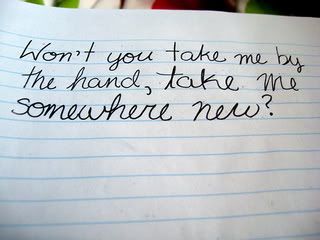 Won't you take me by
the hand, take me
somewhere new?